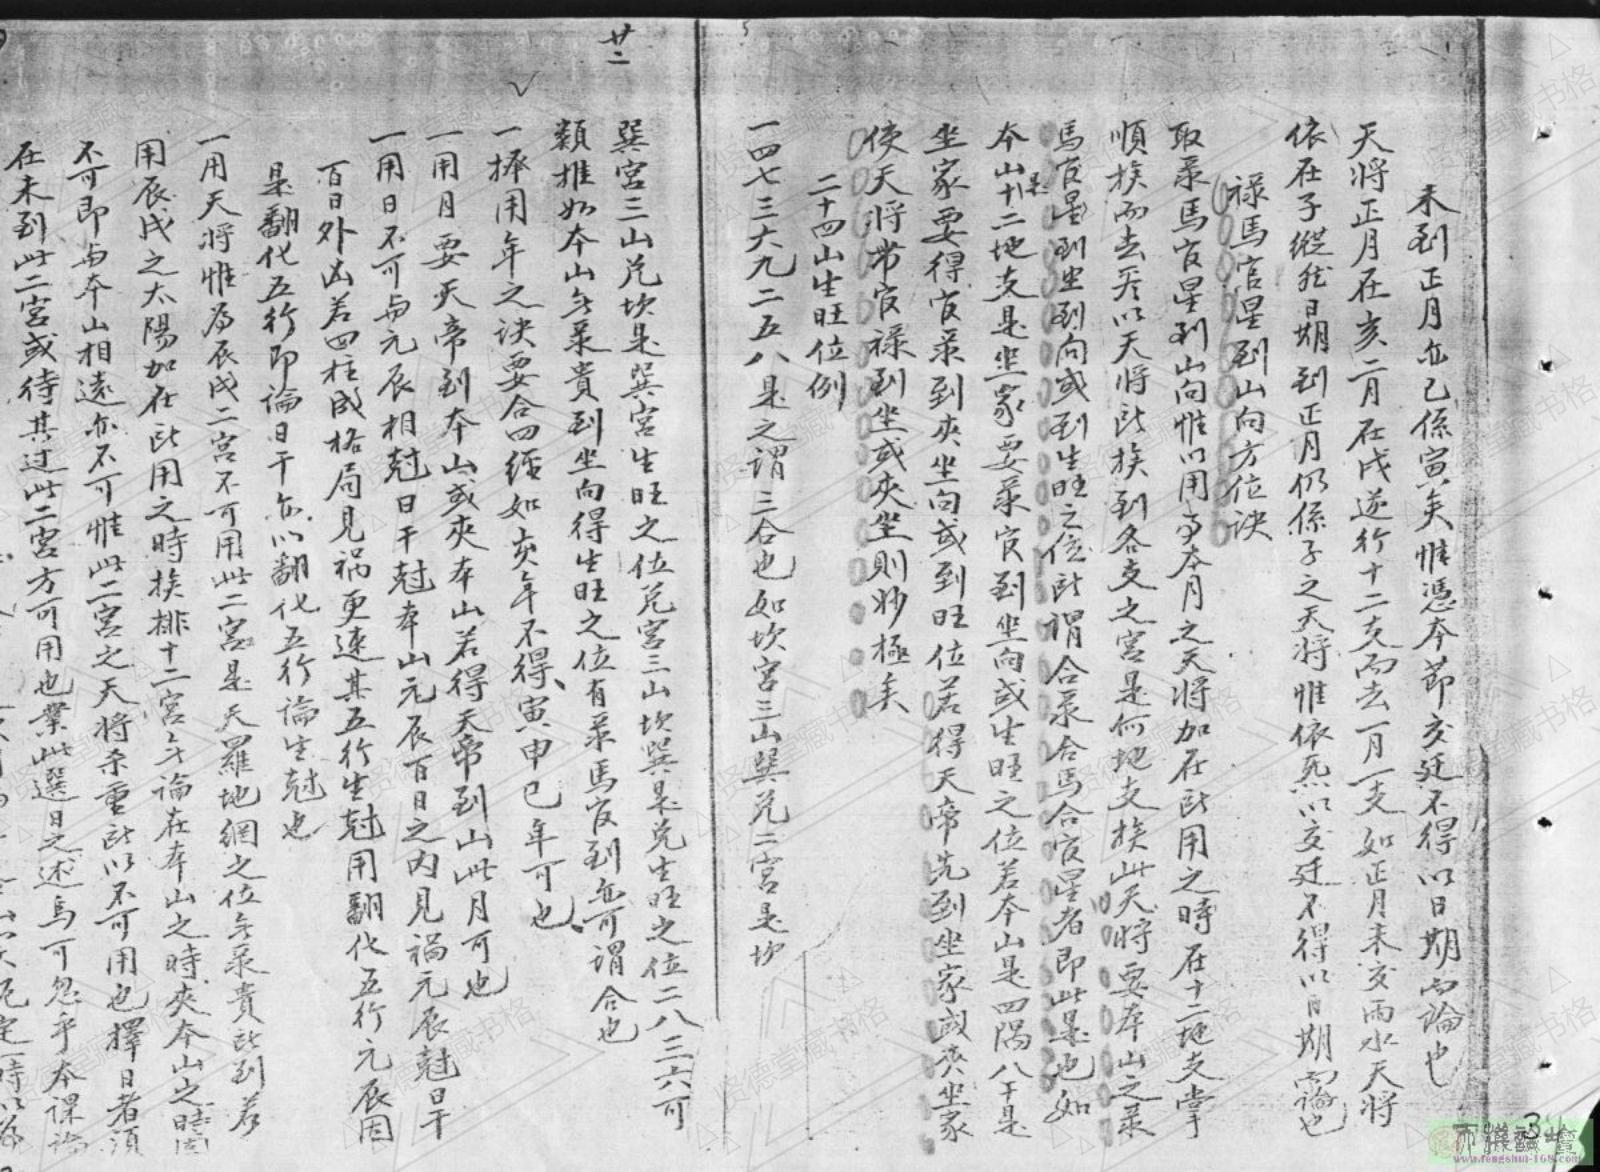 未到正月亦已係寅矣惟憑本節交廷不得以日期而論也
天將正月在亥二月在戌逆行十二支而去一月一支如正月未交雨水天將
依在子縱然日期到正月仍係子之天將惟依炁以交廷不得以日期而論也
祿馬官星到山向方位訣
取录馬官星到山向惟以用事本月之天將加在所用之時在十二地支掌
順挨而去尽以天將所挨到各支之宮是何地支挨此天將要本山之录
馬官星到坐到向或到生旺之位所謂合录合馬合官星者即此是也如
本山是十二地支是坐家要录官到坐向或生旺之位若本山是四隅八干是
坐家要得官录到夾坐向或到旺位若得天帝先到坐家或夾坐家
使天將帶官祿到坐或夾坐則妙極矣
二十四山生旺位例
一四七三六九二五八是之謂三合也如坎宮三山巽兌二宮是坎
廿二
巽宮三山兌坎是巽宮生旺之位兌宮三山坎巽是兌生旺之位二八三六可
類推如本山無录貴到坐向得生旺之位有录馬官到亦可謂合也
一擇用年之訣要合四經如亥年不得寅申巳年可也
一用月要天帝到本山或夾本山若得天帝到山此月可也
一用日不可與元辰相尅日干尅本山元辰百日之內見禍元辰尅日干
百日外凶若四柱成格局見禍更速其五行生尅用翻化五行元辰因
是翻化五行即論日干亦以翻化五行論生尅也
一用天將惟為辰戌二宮不可用此二宮是天羅地網之位無录貴所到若
用辰戌之太陽加在所用之時挨排十二宮無論在本山之時夾本山之時固
不可即與本山相遠亦不可惟此二宮之天將杀重所以不可用也擇日者須
在未到此二宮或待其過此二宮方可用也業此選日之述烏可忽乎本課論
3
www.fengshui-168.com
贤德堂藏书格